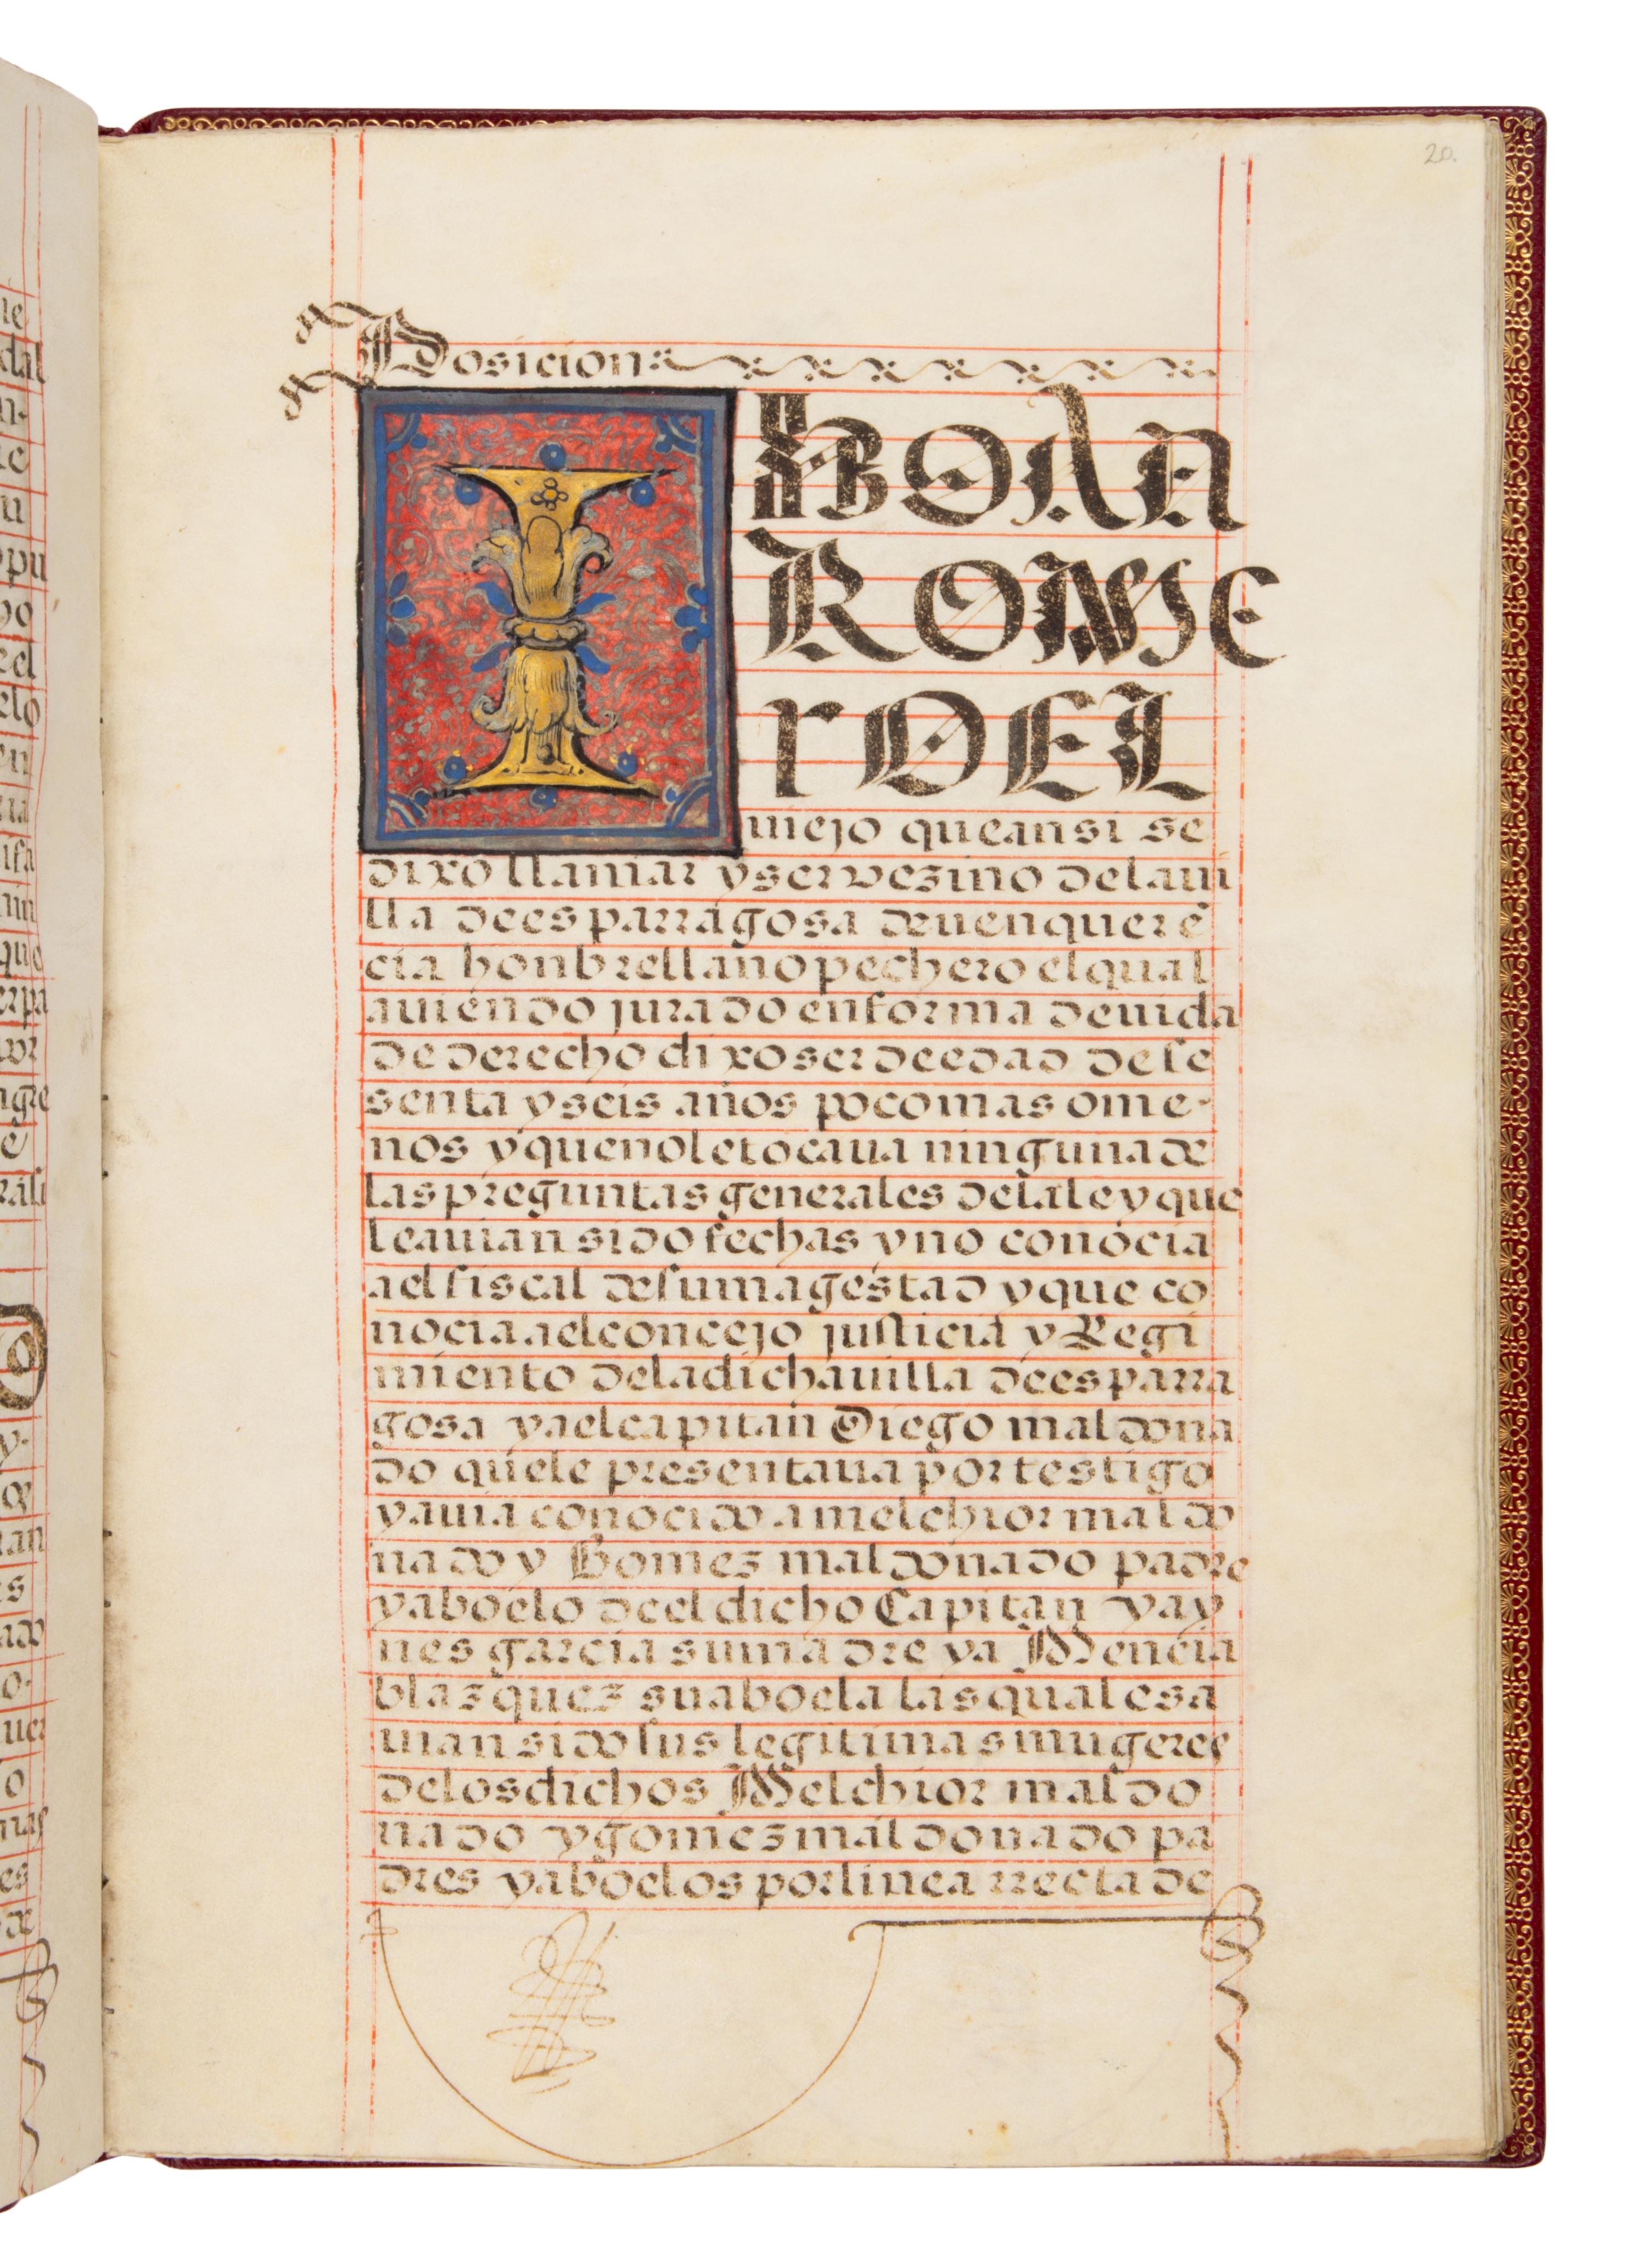 20.
Posicion
I HOAN
ROME
ROEL
uiejo queansi se
dixo llamar y ser vezino delaui
lla deesparragosa deuenquere
cia honbrellano pechero elqual
auiendo jurado enforma deuida
de derecho dixo ser deedad de se
senta y seis años poco mas o me-
nos y que nole tocaua ninguna de
las preguntas generales de la ley que
le auian sido fechas y no conocia
a el fiscal de su magestad y que co
nocia a el concejo justicia y Regi
miento dela dicha uilla de esparra
gosa y a el capitan Diego maldona
do que le presentaua por testigo
y auia conocido a melchior maldo
nado y Gomez maldonado padre
y aboelo de el dicho Capitan y a y
nes garcia su madre y a Mencia
blazquez su aboela las quales a
uian sido sus legitimas mugeres
delos dichos Melchior maldo
nado y gomez maldonado pa
dres y aboelos por linea rrecta de